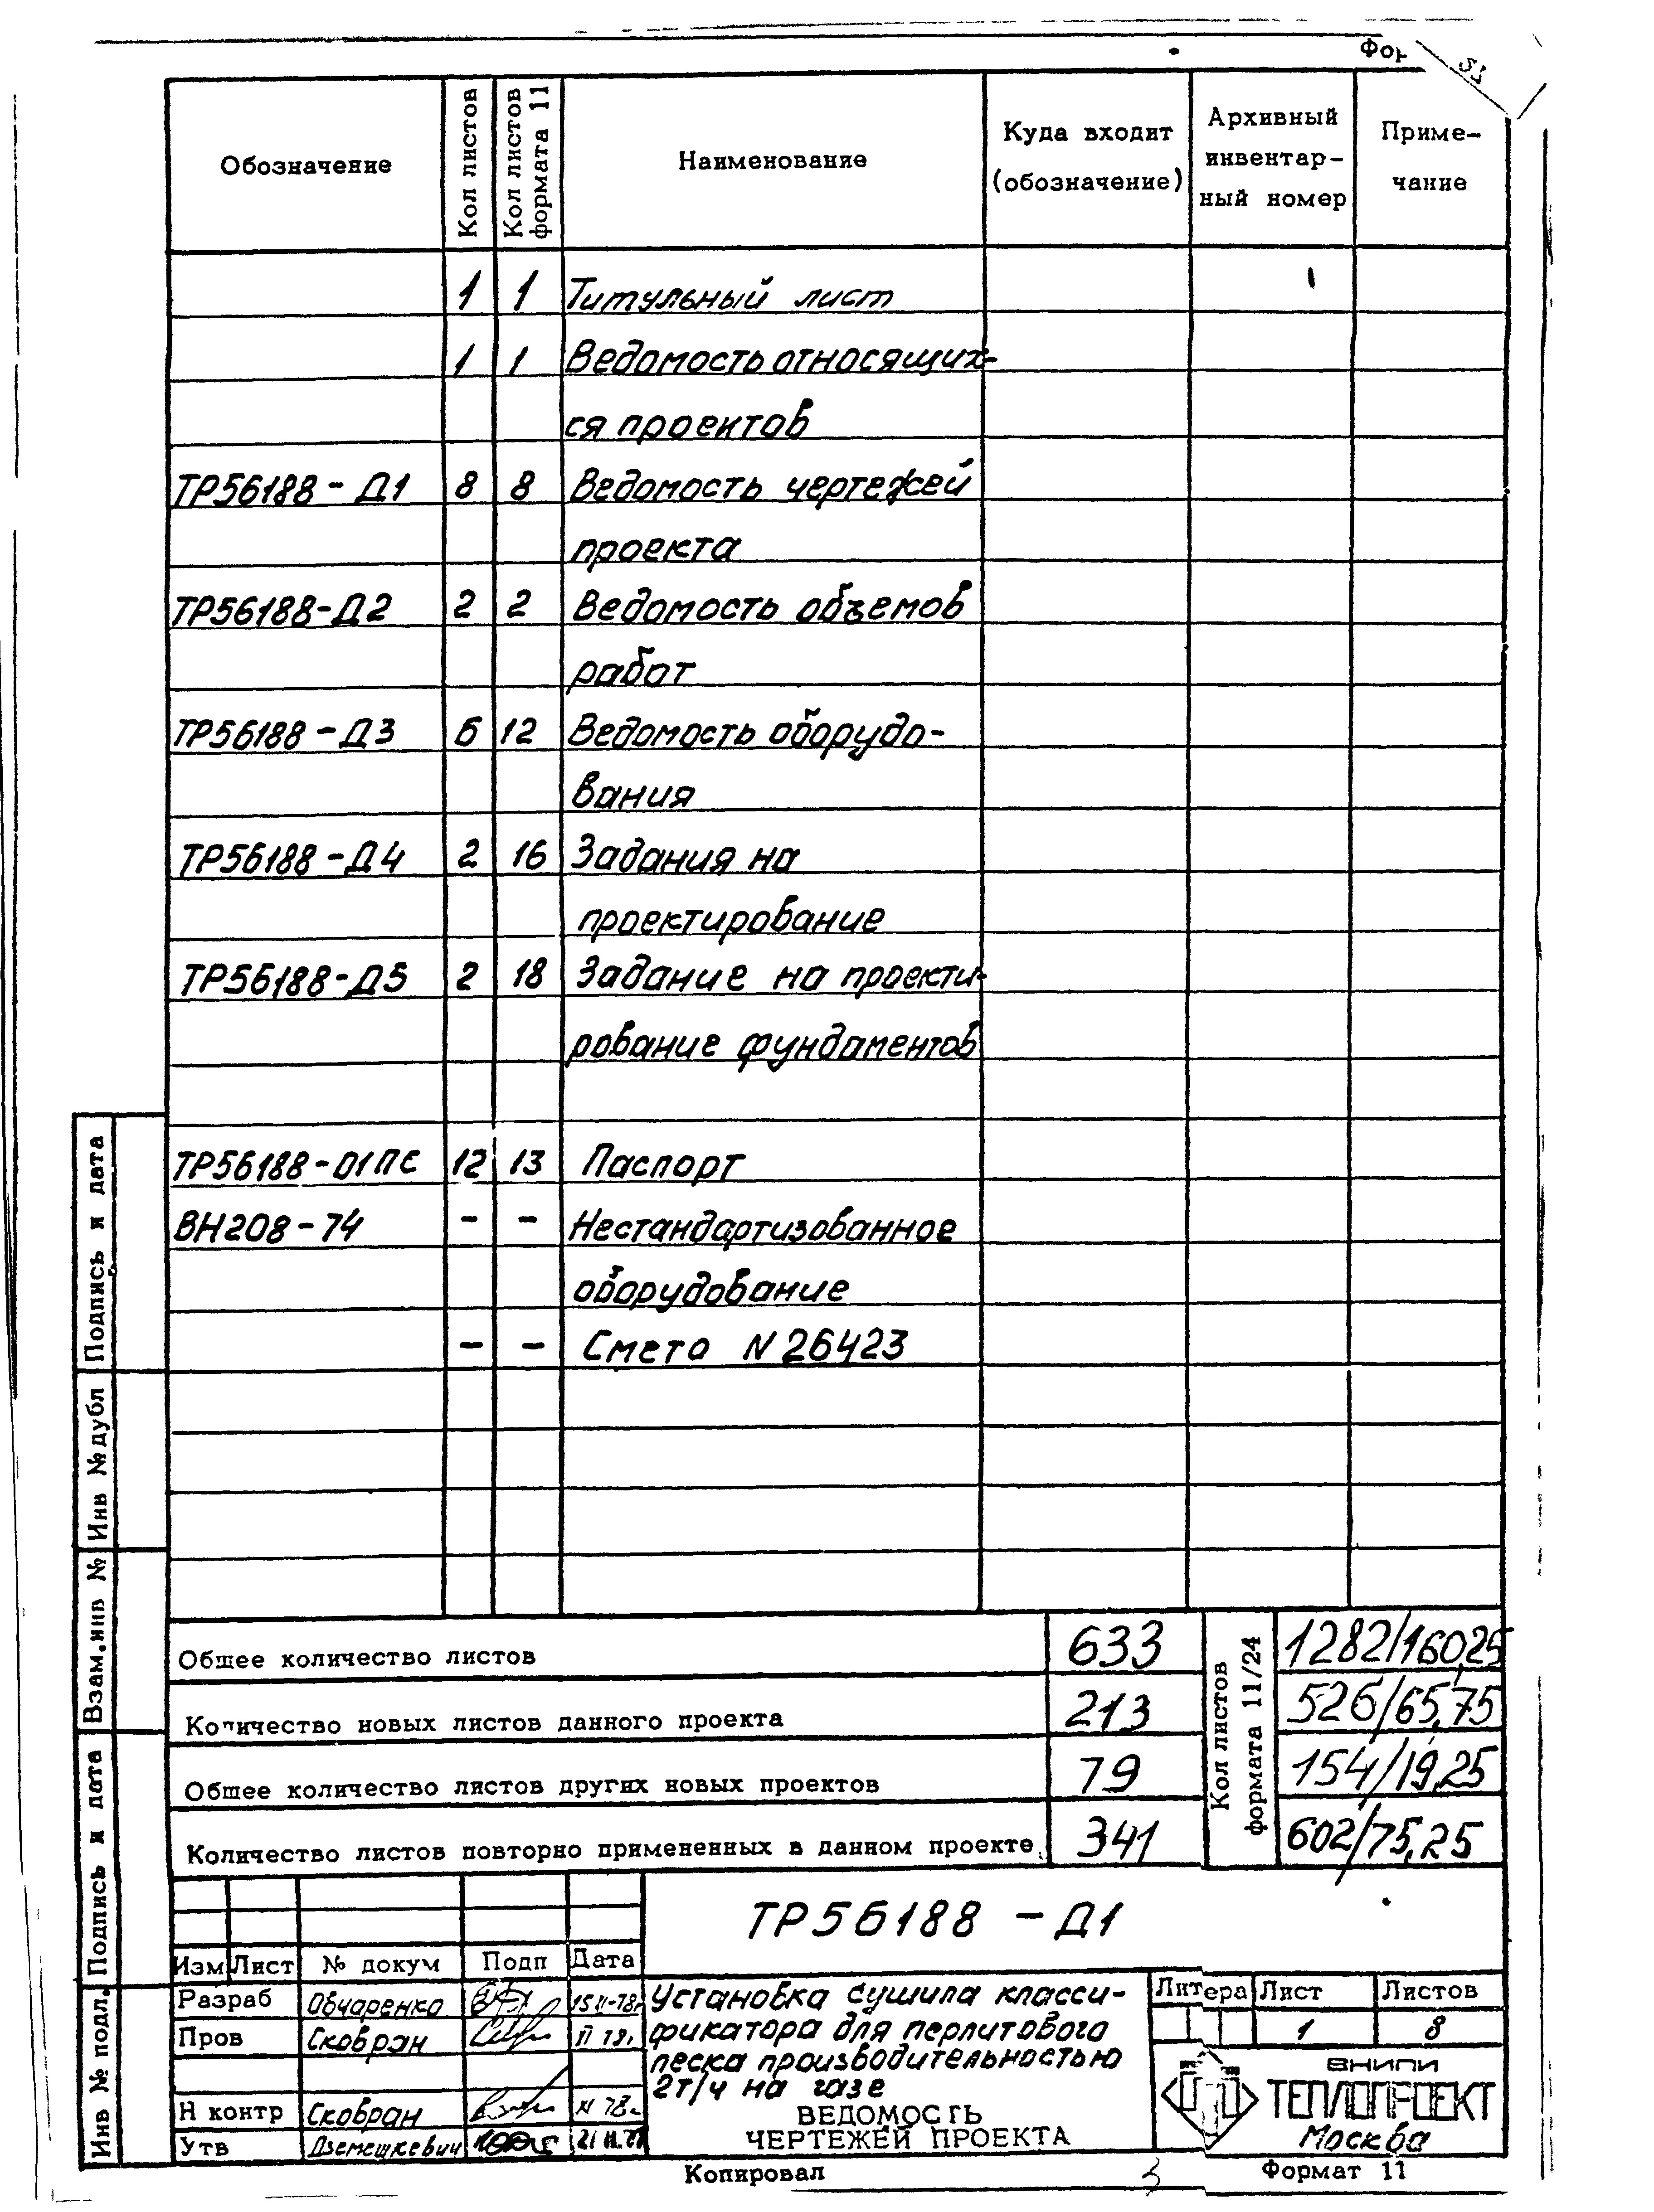 Обозначение
Кол листов
Кол листов
формата 11
Наименование
Куда входит
(обозначение)
Архивный
инвентар-
ный номер
Приме-
чание
1 1 Титульный лист
1 1 Ведомость относящих-
ся проектов
ТР56188-Д1 8 8 Ведомость чертежей
проекта
ТР56188-Д2 2 2 Ведомость объемов
работ
ТР56188-Д3 6 12 Ведомость оборудо-
вания
ТР56188-Д4 2 16 Задания на
проектирование
ТР56188-Д5 2 18 Задание на проекти-
рование фундаментов
ТР56188-01ПС 12 13 Паспорт
ВН208-74 - - Нестандартизованное
оборудование
- - Смета N 26423
Общее количество листов 633
Количество новых листов данного проекта 213
Общее количество листов других новых проектов 79
Количество листов повторно примененных в данном проекте 341
Кол листов
формата 11/24
1282/160,25
526/65,75
154/19,25
602/75,25
ТР56188-Д1
Изм Лист № докум Подп Дата
Разраб Овчаренко 15 II-78г
Пров Сковран
Н контр Сковран
Утв Дземешкевич
Установка сушила класси-
фикатора для перлитового
песка производительностью
2т/ч на газе
ВЕДОМОСТЬ
ЧЕРТЕЖЕЙ ПРОЕКТА
Литера Лист Листов
1 8
ВНИПИ
ТЕПЛОПРОЕКТ
Москва
Копировал
Формат 11
Подпись и дата
Инв № дубл
Взам.инв №
Подпись и дата
Инв № подл.